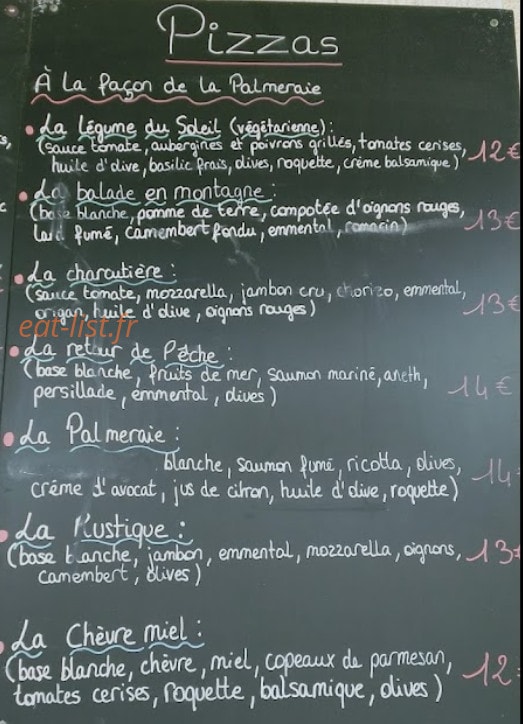 Pizzas
À la façon de la Palmeraie
La légume du Soleil (végétarienne) :
(sauce tomate, aubergines et poivrons grillés, tomates cerises, 12€
huile d'olive, basilic frais, olives, roquette, crème balsamique)
La balade en montagne :
(base blanche, pomme de terre, compotée d'oignons rouges, 13€
lard fumé, camembert fondu, emmental, romarin)
La charcutière :
(sauce tomate, mozzarella, jambon cru, chorizo, emmental, 13€
origan, huile d'olive, oignons rouges)
eat-list.fr
La retour de Pêche :
(base blanche, fruits de mer, saumon mariné, aneth, 14€
persillade, emmental, olives)
La Palmeraie :
blanche, saumon fumé, ricotta, olives, 14
crème d'avocat, jus de citron, huile d'olive, roquette)
La Rustique :
(base blanche, jambon, emmental, mozzarella, oignons, 13€
camembert, olives)
La Chèvre miel :
(base blanche, chèvre, miel, copeaux de parmesan, 12
tomates cerises, roquette, balsamique, olives)